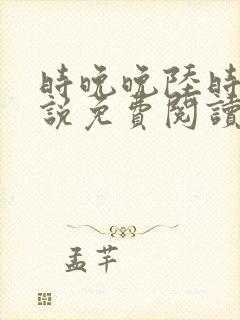 時晚晚陸時
說免費閱讀
孟芊